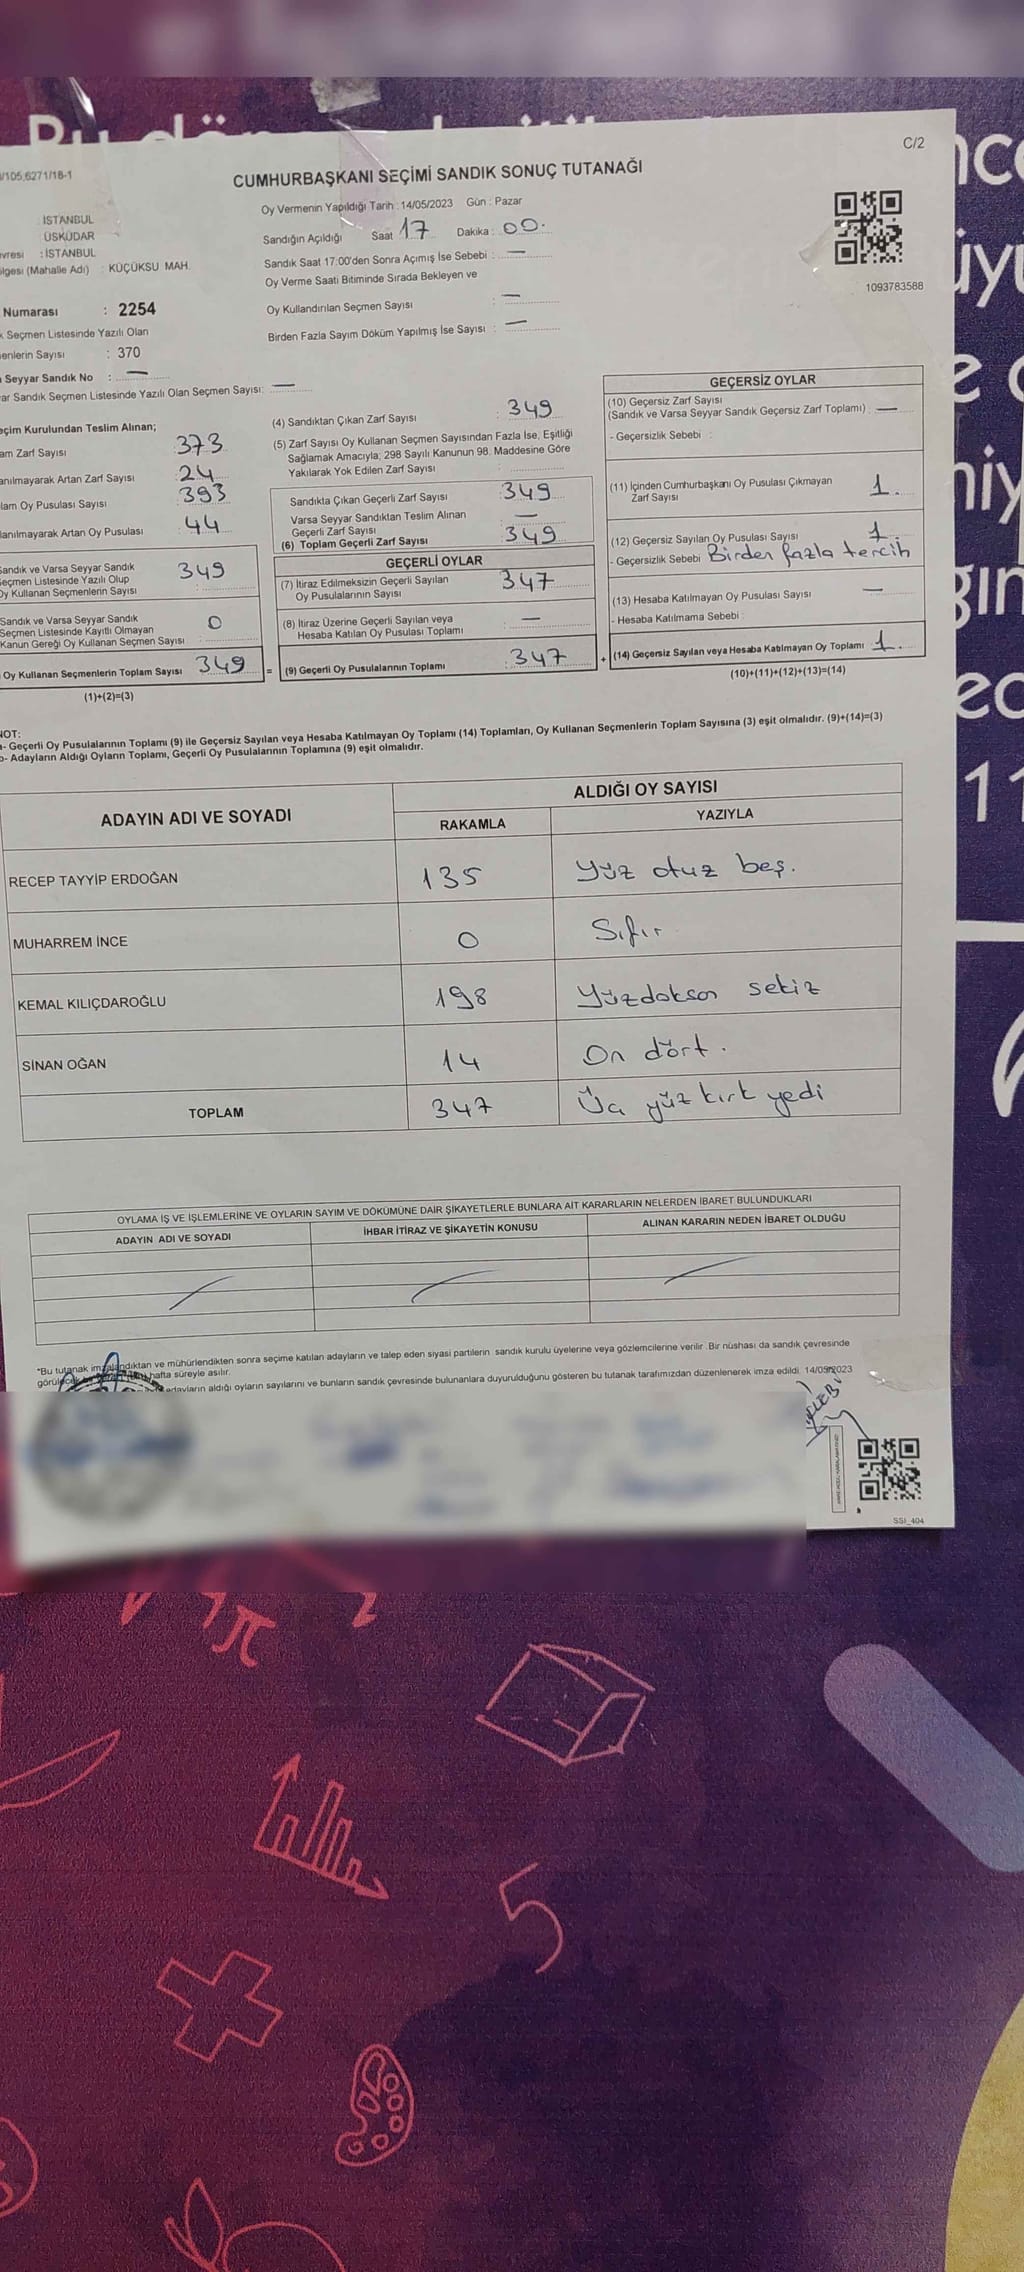 C/2
/105.6271/18-1
CUMHURBAŞKANI SEÇİMİ SANDIK SONUÇ TUTANAĞI
Oy Vermenin Yapıldığı Tarih : 14/05/2023 Gün : Pazar
: İSTANBUL
: ÜSKÜDAR
: İSTANBUL
(Mahalle Adı) : KÜÇÜKSU MAH.
Sandığın Açıldığı Saat 17 Dakika : 00.
Sandık Saat 17:00'den Sonra Açımış İse Sebebi : —
Oy Verme Saati Bitiminde Sırada Bekleyen ve
Oy Kullandırılan Seçmen Sayısı : —
Birden Fazla Sayım Döküm Yapılmış İse Sayısı : —
1093783588
Numarası : 2254
Seçmen Listesinde Yazılı Olan
Sayısı : 370
Seyyar Sandık No : —
Sandık Seçmen Listesinde Yazılı Olan Seçmen Sayısı: —
Kurulundan Teslim Alınan;
Zarf Sayısı 373
Artan Zarf Sayısı 24
Oy Pusulası Sayısı 393
Artan Oy Pusulası 44
Sandık ve Varsa Seyyar Sandık
Seçmen Listesinde Yazılı Olup
Oy Kullanan Seçmenlerin Sayısı 349
Sandık ve Varsa Seyyar Sandık
Seçmen Listesinde Kayıtlı Olmayan
Kanun Gereği Oy Kullanan Seçmen Sayısı 0
Oy Kullanan Seçmenlerin Toplam Sayısı 349 =
(1)+(2)=(3)
(4) Sandıktan Çıkan Zarf Sayısı : 349
(5) Zarf Sayısı Oy Kullanan Seçmen Sayısından Fazla İse, Eşitliği
Sağlamak Amacıyla; 298 Sayılı Kanunun 98. Maddesine Göre
Yakılarak Yok Edilen Zarf Sayısı :
Sandıkta Çıkan Geçerli Zarf Sayısı : 349
Varsa Seyyar Sandıktan Teslim Alınan
Geçerli Zarf Sayısı : —
(6) Toplam Geçerli Zarf Sayısı : 349
GEÇERLİ OYLAR
(7) İtiraz Edilmeksizin Geçerli Sayılan
Oy Pusulalarının Sayısı : 347
(8) İtiraz Üzerine Geçerli Sayılan veya
Hesaba Katılan Oy Pusulası Toplamı : —
(9) Geçerli Oy Pusulalarının Toplamı : 347 +
GEÇERSİZ OYLAR
(10) Geçersiz Zarf Sayısı
(Sandık ve Varsa Seyyar Sandık Geçersiz Zarf Toplamı) : —
- Geçersizlik Sebebi :
(11) İçinden Cumhurbaşkanı Oy Pusulası Çıkmayan
Zarf Sayısı 1.
(12) Geçersiz Sayılan Oy Pusulası Sayısı 1.
- Geçersizlik Sebebi Birden fazla tercih
(13) Hesaba Katılmayan Oy Pusulası Sayısı —
- Hesaba Katılmama Sebebi :
(14) Geçersiz Sayılan veya Hesaba Katılmayan Oy Toplamı 1.
(10)+(11)+(12)+(13)=(14)
NOT:
a- Geçerli Oy Pusulalarının Toplamı (9) ile Geçersiz Sayılan veya Hesaba Katılmayan Oy Toplamı (14) Toplamları, Oy Kullanan Seçmenlerin Toplam Sayısına (3) eşit olmalıdır. (9)+(14)=(3)
b- Adayların Aldığı Oyların Toplamı, Geçerli Oy Pusulalarının Toplamına (9) eşit olmalıdır.
ADAYIN ADI VE SOYADI ALDIĞI OY SAYISI
RAKAMLA YAZIYLA
RECEP TAYYİP ERDOĞAN 135 Yüz otuz beş.
MUHARREM İNCE 0 Sıfır
KEMAL KILIÇDAROĞLU 198 Yüzdoksan sekiz
SİNAN OĞAN 14 On dört.
TOPLAM 347 Üç yüz kırk yedi
OYLAMA İŞ VE İŞLEMLERİNE VE OYLARIN SAYIM VE DÖKÜMÜNE DAİR ŞİKAYETLERLE BUNLARA AİT KARARLARIN NELERDEN İBARET BULUNDUKLARI
ADAYIN ADI VE SOYADI İHBAR İTİRAZ VE ŞİKAYETİN KONUSU ALINAN KARARIN NEDEN İBARET OLDUĞU
*Bu tutanak imzalandıktan ve mühürlendikten sonra seçime katılan adayların ve talep eden siyasi partilerin sandık kurulu üyelerine veya gözlemcilerine verilir. Bir nüshası da sandık çevresinde
hafta süreyle asılır.
adayların aldığı oyların sayılarını ve bunların sandık çevresinde bulunanlara duyurulduğunu gösteren bu tutanak tarafımızdan düzenlenerek imza edildi. 14/05/2023
SSI_404
11
π
5